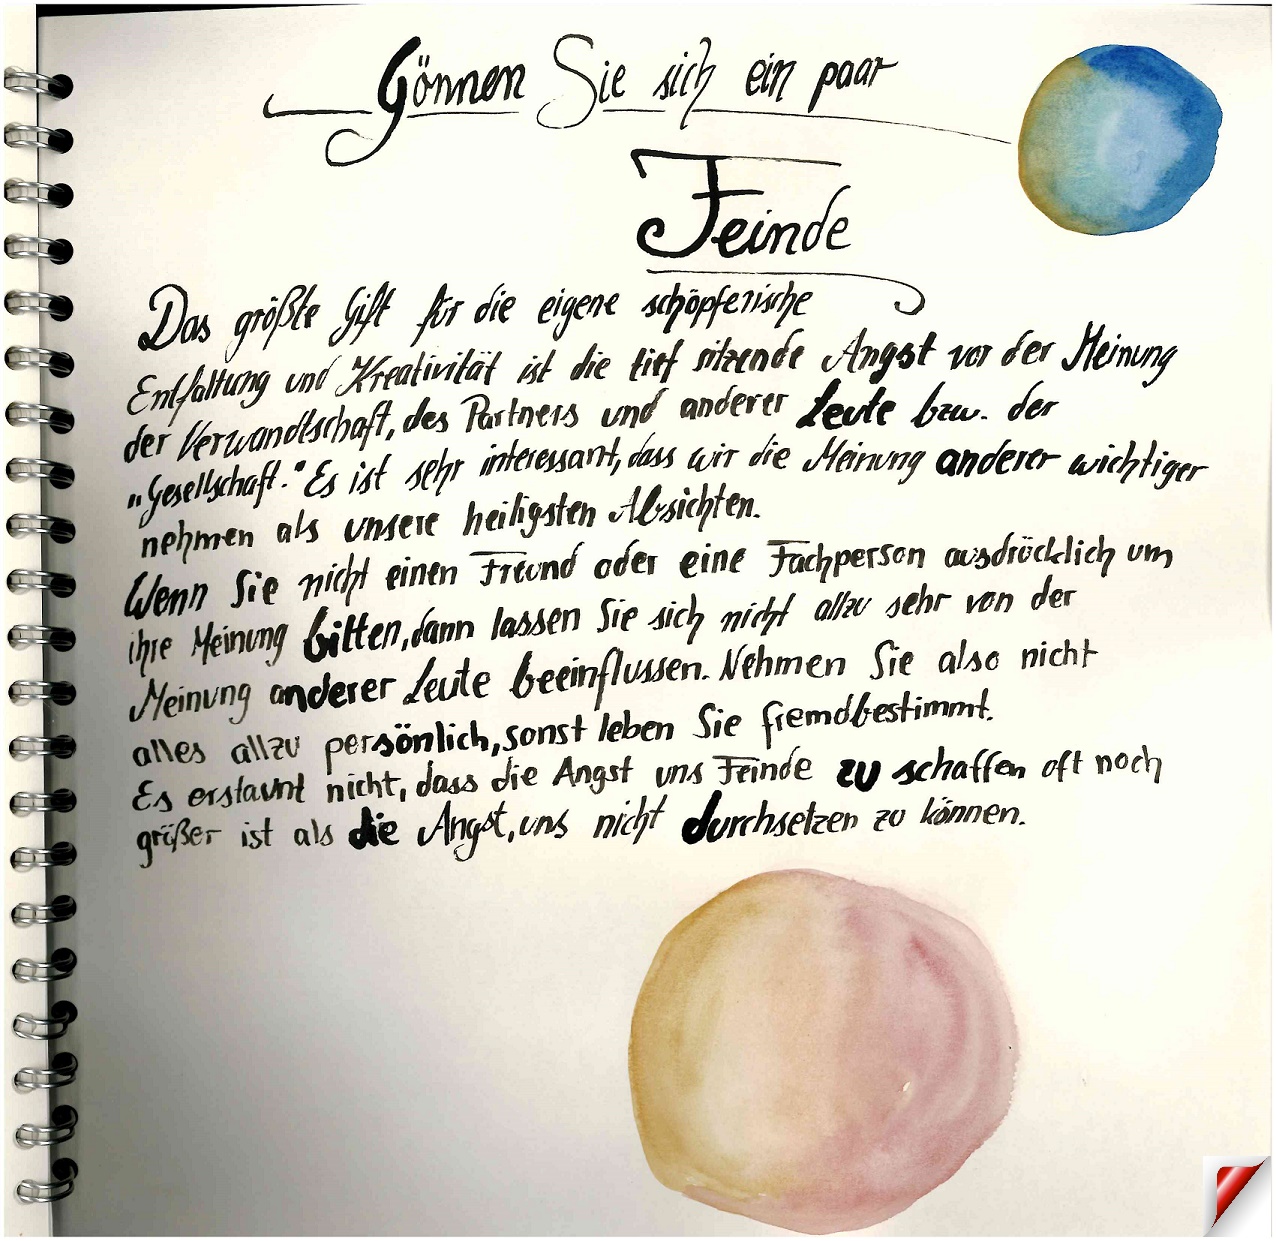 Gönnen Sie sich ein paar
Feinde
Das größte Gift für die eigene schöpferische
Entfaltung und Kreativität ist die tief sitzende Angst vor der Meinung
der Verwandtschaft, des Partners und anderer Leute bzw. der
„Gesellschaft." Es ist sehr interessant, dass wir die Meinung anderer wichtiger
nehmen als unsere heiligsten Absichten.
Wenn Sie nicht einen Freund oder eine Fachperson ausdrücklich um
ihre Meinung bitten, dann lassen Sie sich nicht allzu sehr von der
Meinung anderer Leute beeinflussen. Nehmen Sie also nicht
alles allzu persönlich, sonst leben Sie fremdbestimmt.
Es erstaunt nicht, dass die Angst uns Feinde zu schaffen oft noch
größer ist als die Angst, uns nicht durchsetzen zu können.